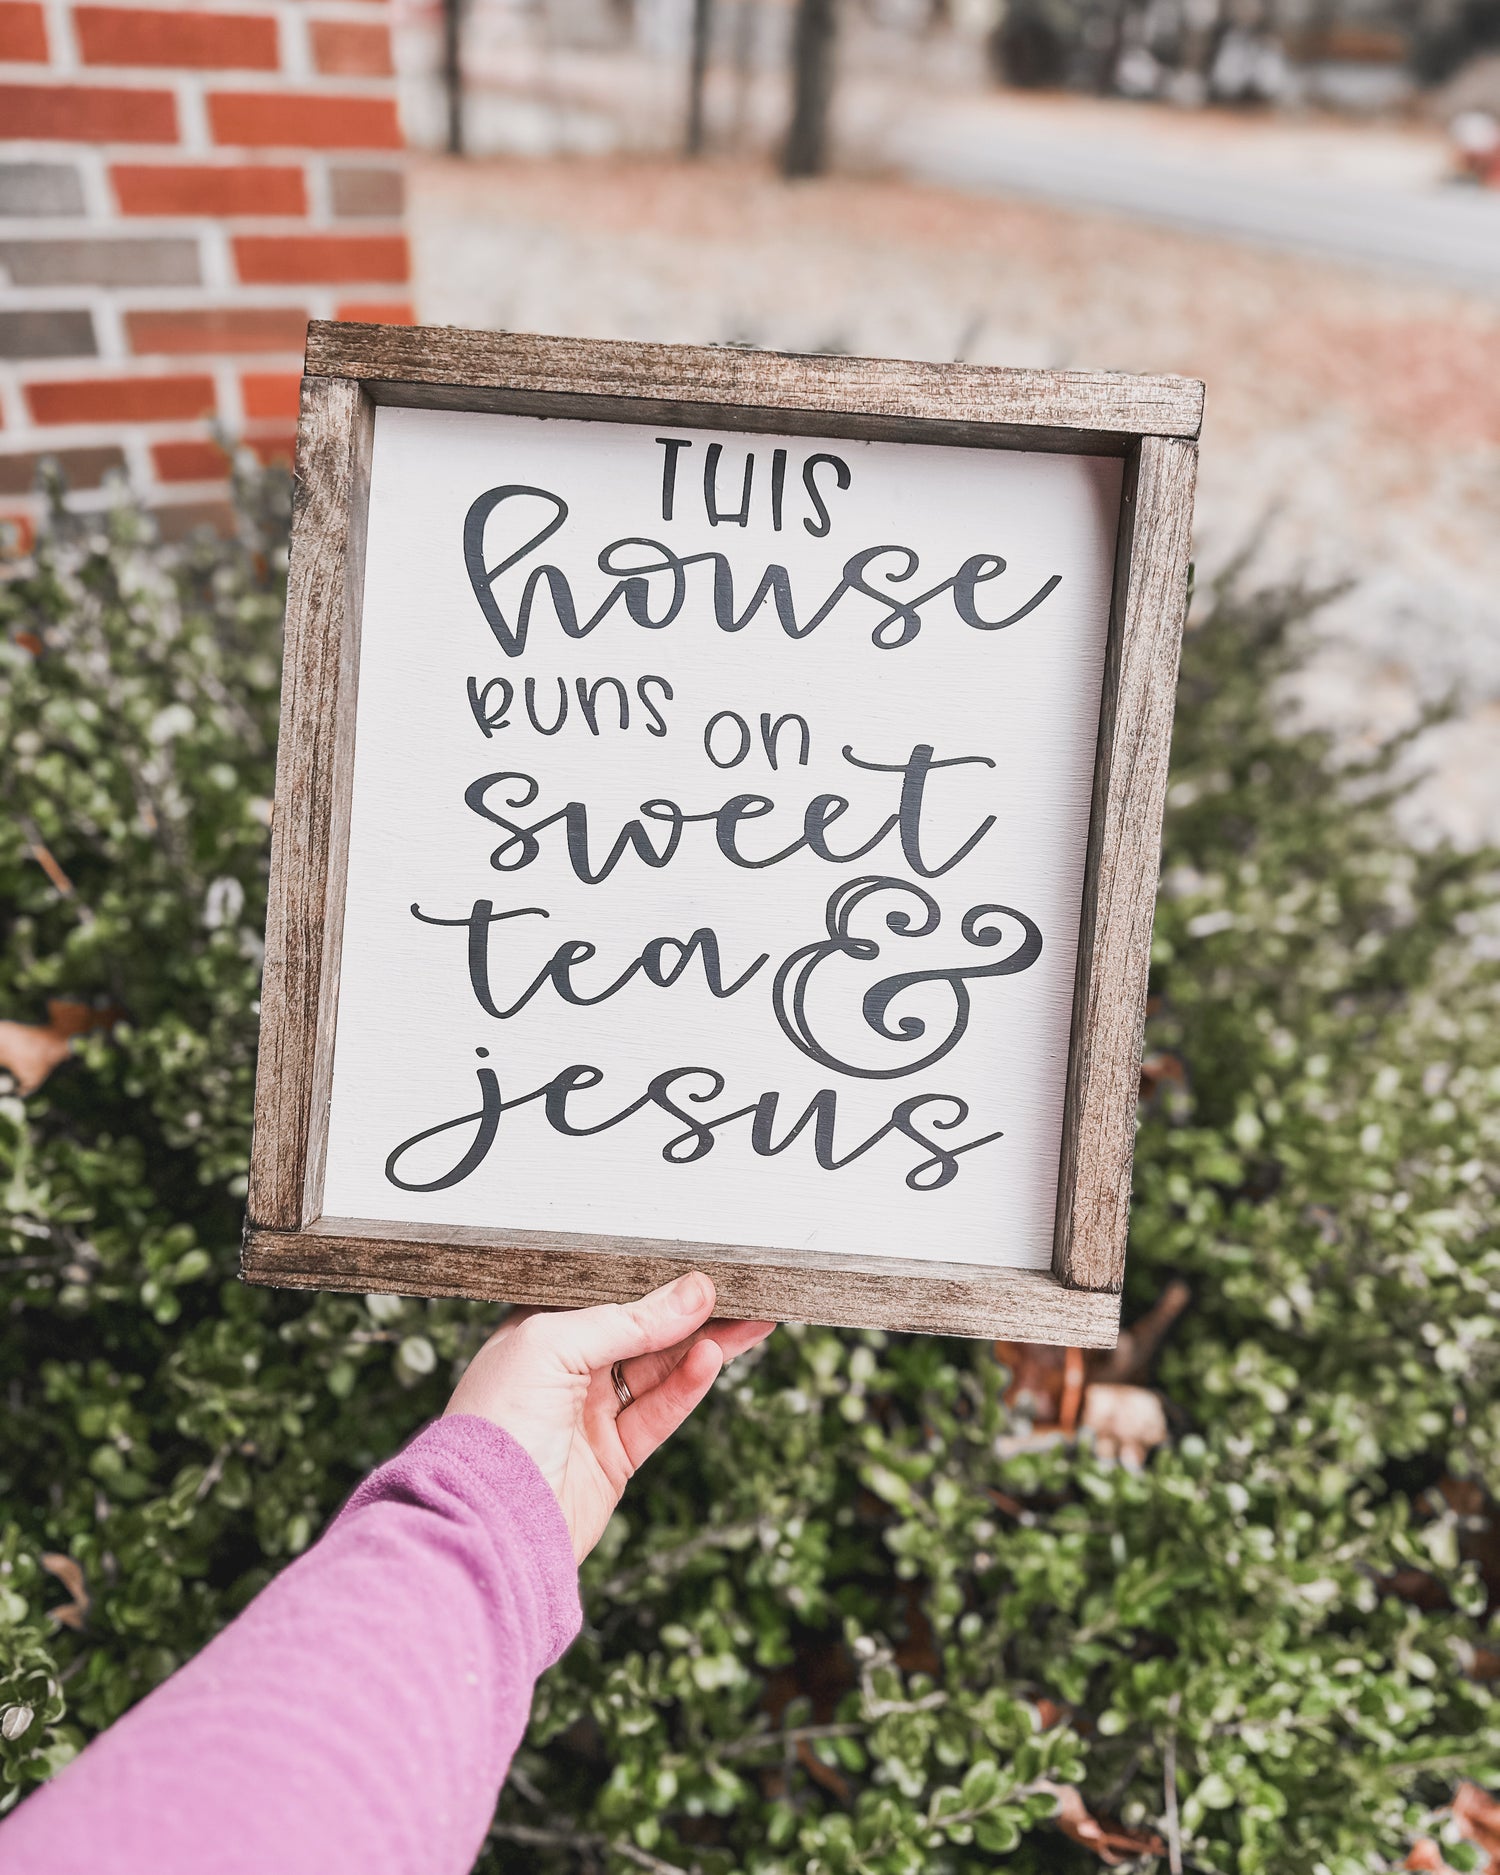 THIS
house
RUNS on
sweet
tea &
jesus